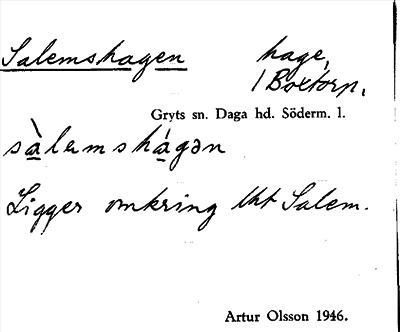 Salemshagen hage,
/ Boxtorp,
Gryts sn. Daga hd. Söderm. l.
sàlemshágən
Ligger omkring lht Salem.
Artur Olsson 1946.